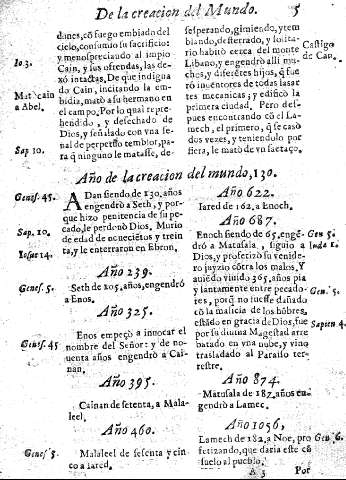 De la creacion del Mundo. 5
dones, cō fuego embiado del
cielo, consumio su sacrificio:
y menospreciando al impio
Cain, y sus ofrendas, las de-
xó intactas. De que indigna
do Cain, incitando la em-
bidia, mató a su hermano en
el campo. Por lo qual repre-
hendido, y desechado de
Dios, y señalado con vna se-
ñal de perpetuo temblor, pa-
ra q̃ ninguno le matasse, de-
Io.3.
Mat cain
a Abel.
Sap 10.
sesperando, gimiendo, y tem
blando, desterrado, y solita-
rio habitò cerca del monte
Libano, y engendrò alli mu-
chos, y diferẽtes hijos, q̃ fue
rō inuentores de todas lasar
tes mecanicas; y edificò la
primera ciudad. Pero des-
pues encontrando cō el La-
mech, el primero, q̃ se casò
dos vezes, y teniendolo por
fiera, le matò de vn saetaço.
Castigo
de Can.
Año de la creacion del mundo, 130.
Genes. 45.
Sap. 10.
Iosue 14.
ADan siendo de 130, años
engendrò a Seth, y por-
que hizo penitencia de su pe-
cado, le perdonò Dios. Murio
de edad de nouecientos y trein
ta, y le enterraron en Ebron.
Año 239.
Genes. 5.
Seth de 105, años, engendró
a Enos.
Año 325.
Genes. 45
Enos empeçò a inuocar el
nombre del Señor: y de no-
uenta años engendrò a Cai-
nan.
Año 395.
Cainan de setenta, a Mala-
leel.
Año 460.
Genes 5.
Malaleel de sesenta y cin-
co a Iared.
Año 622.
Iared de 162, a Enoch.
Año 687.
Enoch siendo de 65, engen-
drò a Matusala, siguio a
Dios, y profetizò su venide-
ro juyzio cōtra los malos. Y
auiedo viuido 365, años pia
y santamente entre pecado-
res, porq̃ no fuesse dañado
cō la malicia de los hōbres,
estādo en gracia de Dios, fue
por su diuina Magestad arre
batado en vna nube, y vino
trasladado al Paraiso ter-
restre.
Gen 5.
Iuda 1.
Gen. 5.
Sapien 4.
Año 874.
Matusala de 187, años en-
gendrò a Lamec.
Año 1056,
Lamech de 182, a Noe, pro
fetizando, que daria este cō
suelo al pueblo.
Gen 6.
A 3 Por